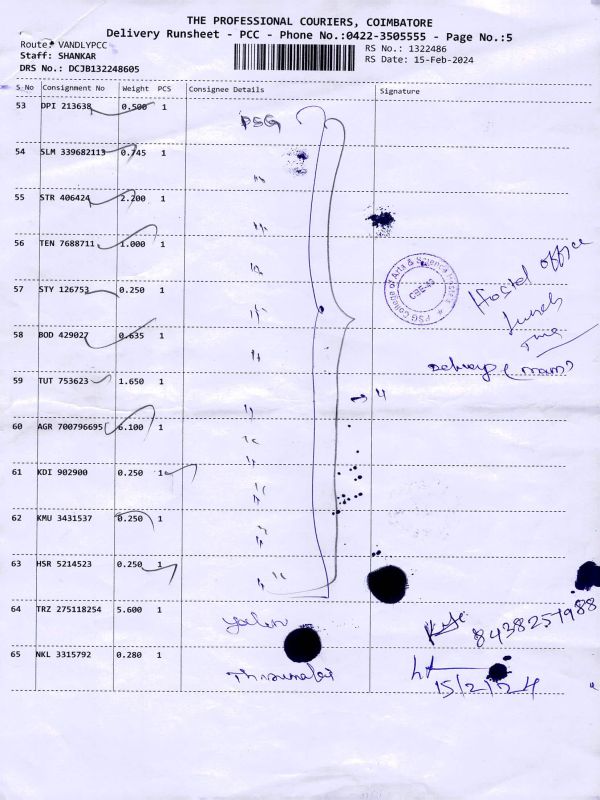 THE PROFESSIONAL COURIERS, COIMBATORE
Delivery Runsheet - PCC - Phone No.:0422-3505555 - Page No.:5
Route: VANDLYPCC
RS No.: 1322486
Staff: SHANKAR
RS Date: 15-Feb-2024
DRS No.: DCJB132248605
S No Consignment No Weight PCS Consignee Details Signature
53 DPI 213638 0.500 1 PSG
54 SLM 339682113 0.745 1 "
55 STR 406424 2.200 1 "
56 TEN 7688711 1.000 1 "
57 STY 126753 0.250 1 "
PSG College of Arts & Science Hostel
CBE-14
Hostel office
Lunch
Time
58 BOD 429027 0.635 1 "
Delivery
59 TUT 753623 1.650 1 "
60 AGR 700796695 6.100 1 "
61 KDI 902900 0.250 1 "
62 KMU 3431537 0.250 1 "
63 HSR 5214523 0.250 1 "
64 TRZ 275118254 5.600 1
8438251988
65 NKL 3315792 0.280 1
15/2/24